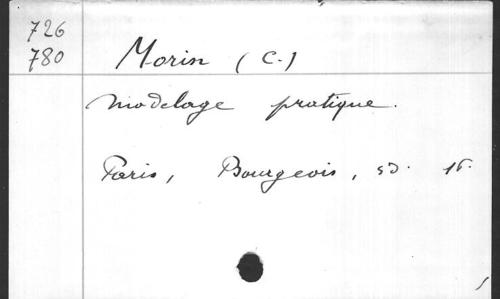 726
780 Morin (C.)
Modelage pratique.
Paris, Bourgeois, sd. 16.